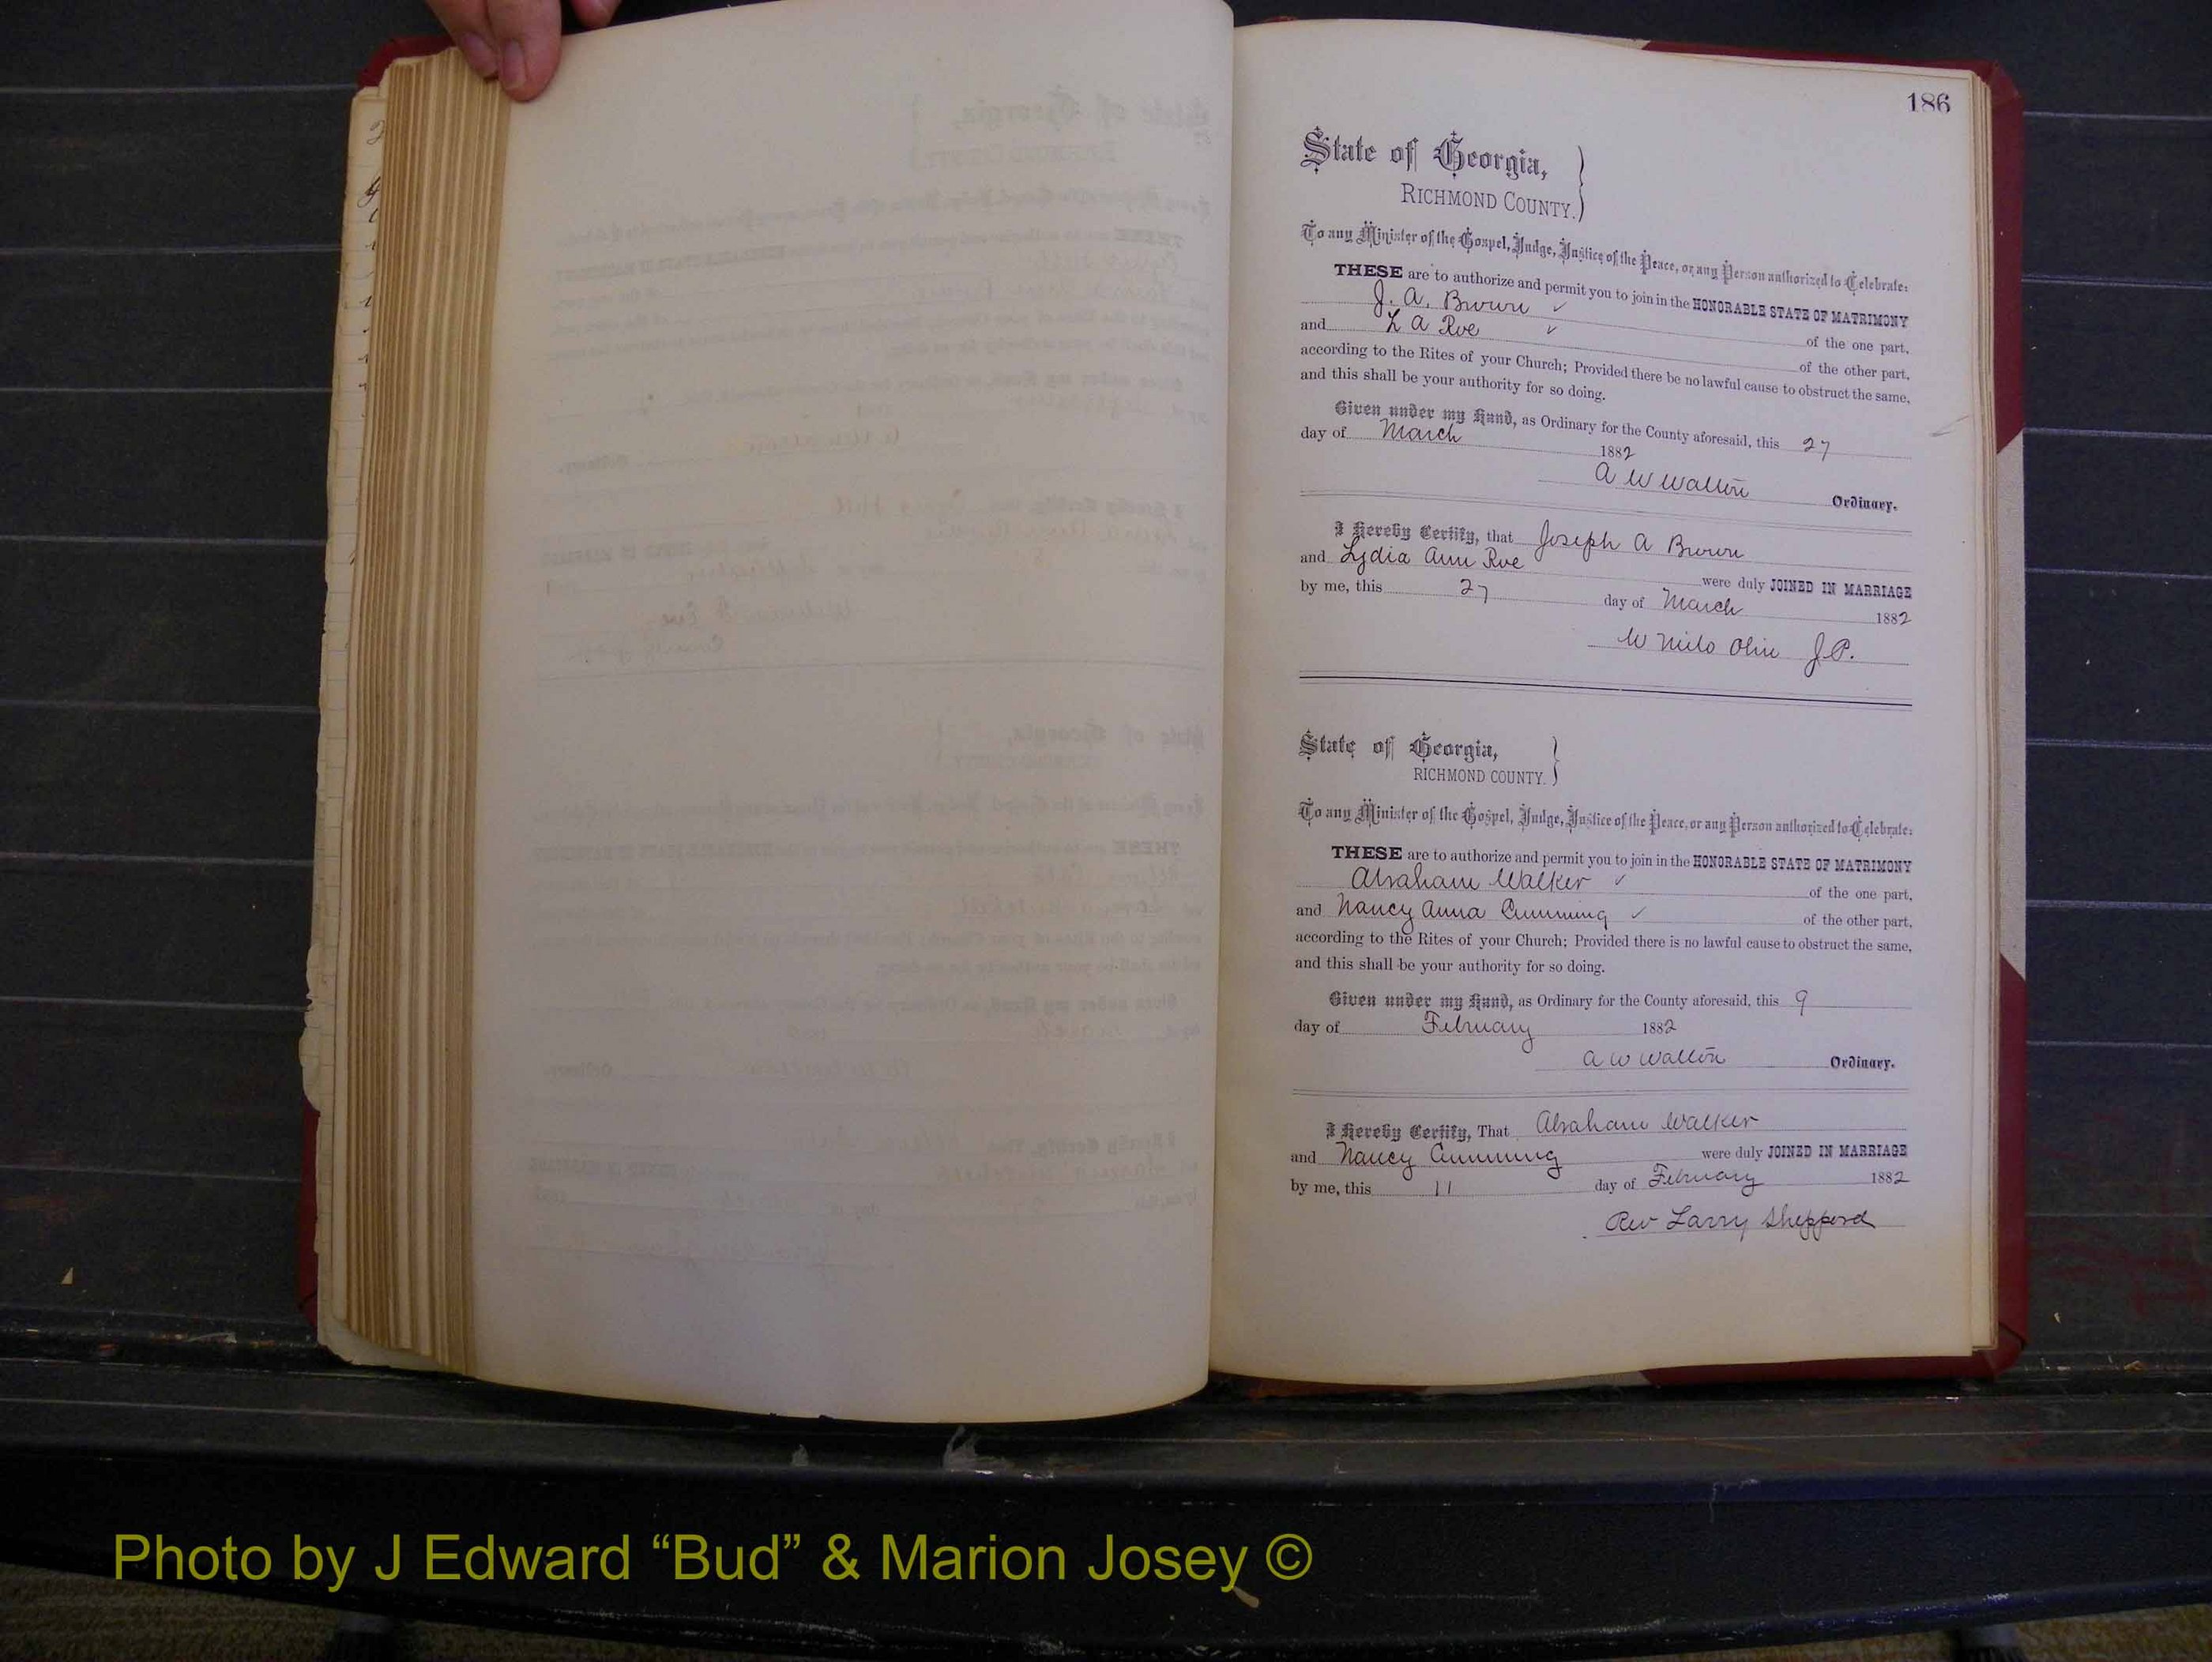 186
State of Georgia,
RICHMOND COUNTY.
To any Minister of the Gospel, Judge, Justice of the Peace, or any Person authorized to Celebrate:
THESE are to authorize and permit you to join in the HONORABLE STATE OF MATRIMONY
J. A. Brown of the one part,
and L A Roe of the other part,
according to the Rites of your Church; Provided there be no lawful cause to obstruct the same,
and this shall be your authority for so doing.
Given under my Hand, as Ordinary for the County aforesaid, this 27
day of March 1882
A W Walton Ordinary.
I Hereby Certify, that Joseph A Brown
and Lydia Ann Roe were duly JOINED IN MARRIAGE
by me, this 27 day of March 1882
W Milo Olin J.P.
State of Georgia,
RICHMOND COUNTY.
To any Minister of the Gospel, Judge, Justice of the Peace, or any Person authorized to Celebrate:
THESE are to authorize and permit you to join in the HONORABLE STATE OF MATRIMONY
Abraham Walker of the one part,
and Nancy Anna Cumming of the other part,
according to the Rites of your Church; Provided there is no lawful cause to obstruct the same,
and this shall be your authority for so doing.
Given under my Hand, as Ordinary for the County aforesaid, this 9
day of February 1882
A W Walton Ordinary.
I Hereby Certify, That Abraham Walker
and Nancy Cumming were duly JOINED IN MARRIAGE
by me, this 11 day of February 1882
Rev Larry Shepperd
Photo by J Edward “Bud” & Marion Josey ©